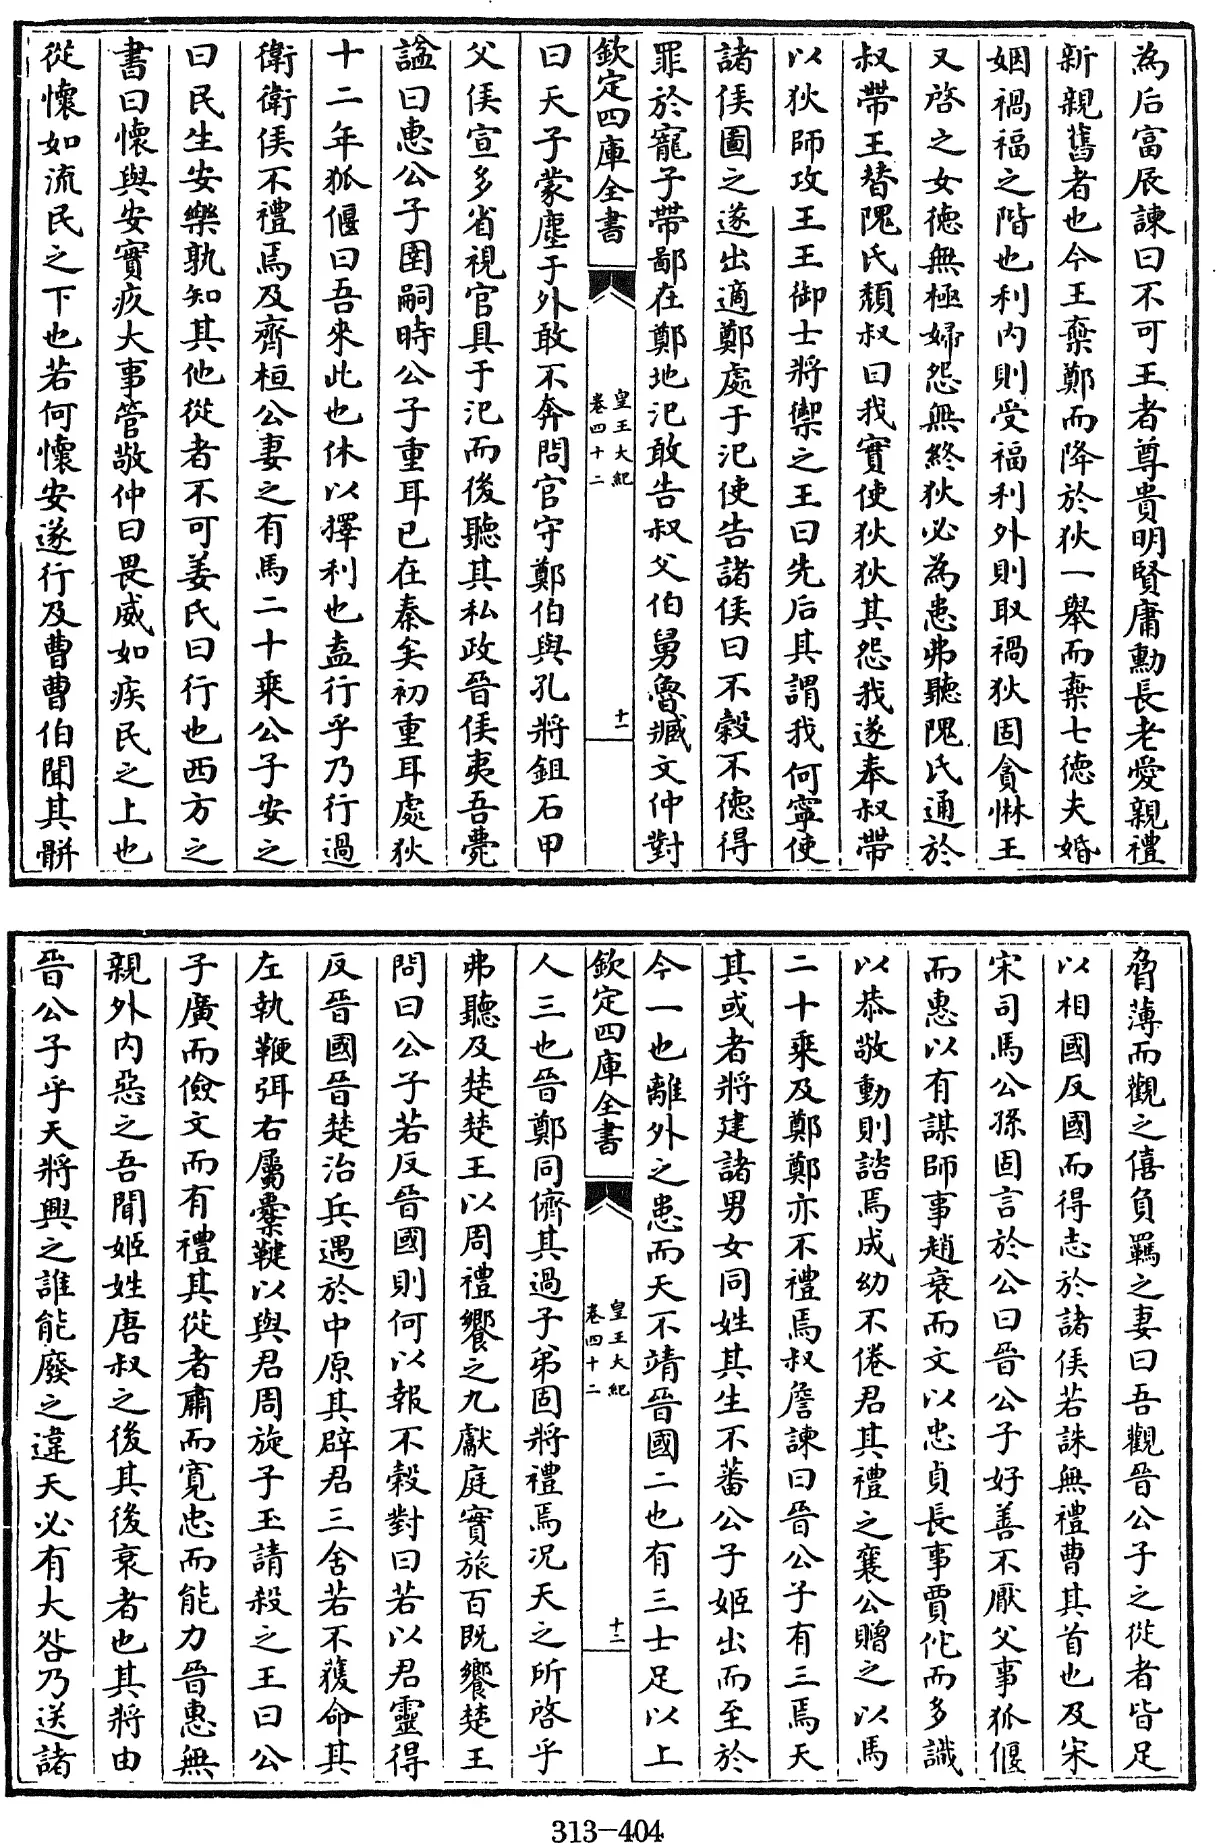 為后富辰諫曰不可王者尊貴明賢庸勳長老愛親禮
新親舊者也今王棄鄭而降於狄一舉而棄七德夫婚
姻禍福之階也利内則受福利外則取禍狄固貪惏王
又啓之女德無極婦怨無終狄必為患弗聽隗氏通於
叔帶王替隗氏頽叔曰我實使狄狄其怨我遂奉叔帶
以狄師攻王王御士將禦之王曰先后其謂我何寧使
諸侯圖之遂出適鄭處于氾使告諸侯曰不穀不德得
罪於寵子帶鄙在鄭地氾敢告叔父伯舅魯臧文仲對
欽定四庫全書
皇王大紀
卷四十二
十一
曰天子蒙塵于外敢不奔問官守鄭伯與孔將鉏石甲
父侯宣多省視官具于氾而後聽其私政晉侯夷吾薨
諡曰惠公子圉嗣時公子重耳已在秦矣初重耳處狄
十二年狐偃曰吾來此也休以擇利也盍行乎乃行過
衛衛侯不禮焉及齊桓公妻之有馬二十乘公子安之
曰民生安樂孰知其他從者不可姜氏曰行也西方之
書曰懷與安實疚大事管敬仲曰畏威如疾民之上也
從懷如流民之下也若何懷安遂行及曹曹伯聞其骿
脅薄而觀之僖負羈之妻曰吾觀晉公子之從者皆足
以相國反國而得志於諸侯若誅無禮曹其首也及宋
宋司馬公孫固言於公曰晉公子好善不厭父事狐偃
而惠以有謀師事趙衰而文以忠貞長事賈佗而多識
以恭敬動則諮焉成幼不倦君其禮之襄公贈之以馬
二十乘及鄭鄭亦不禮焉叔詹諫曰晉公子有三焉天
其或者將建諸男女同姓其生不蕃公子姬出而至於
今一也離外之患而天不靖晉國二也有三士足以上
欽定四庫全書
皇王大紀
卷四十二
十二
人三也晉鄭同儕其過子弟固將禮焉況天之所啓乎
弗聽及楚楚王以周禮饗之九獻庭實旅百既饗楚王
問曰公子若反晉國則何以報不穀對曰若以君靈得
反晉國晉楚治兵遇於中原其辟君三舍若不獲命其
左執鞭弭右屬櫜鞬以與君周旋子玉請殺之王曰公
子廣而儉文而有禮其從者肅而寛忠而能力晉惠無
親外内惡之吾聞姬姓唐叔之後其後衰者也其將由
晉公子乎天將興之誰能廢之違天必有大咎乃送諸
313-404